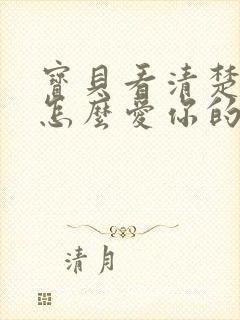 寶貝看清楚
怎麼愛你的
清月